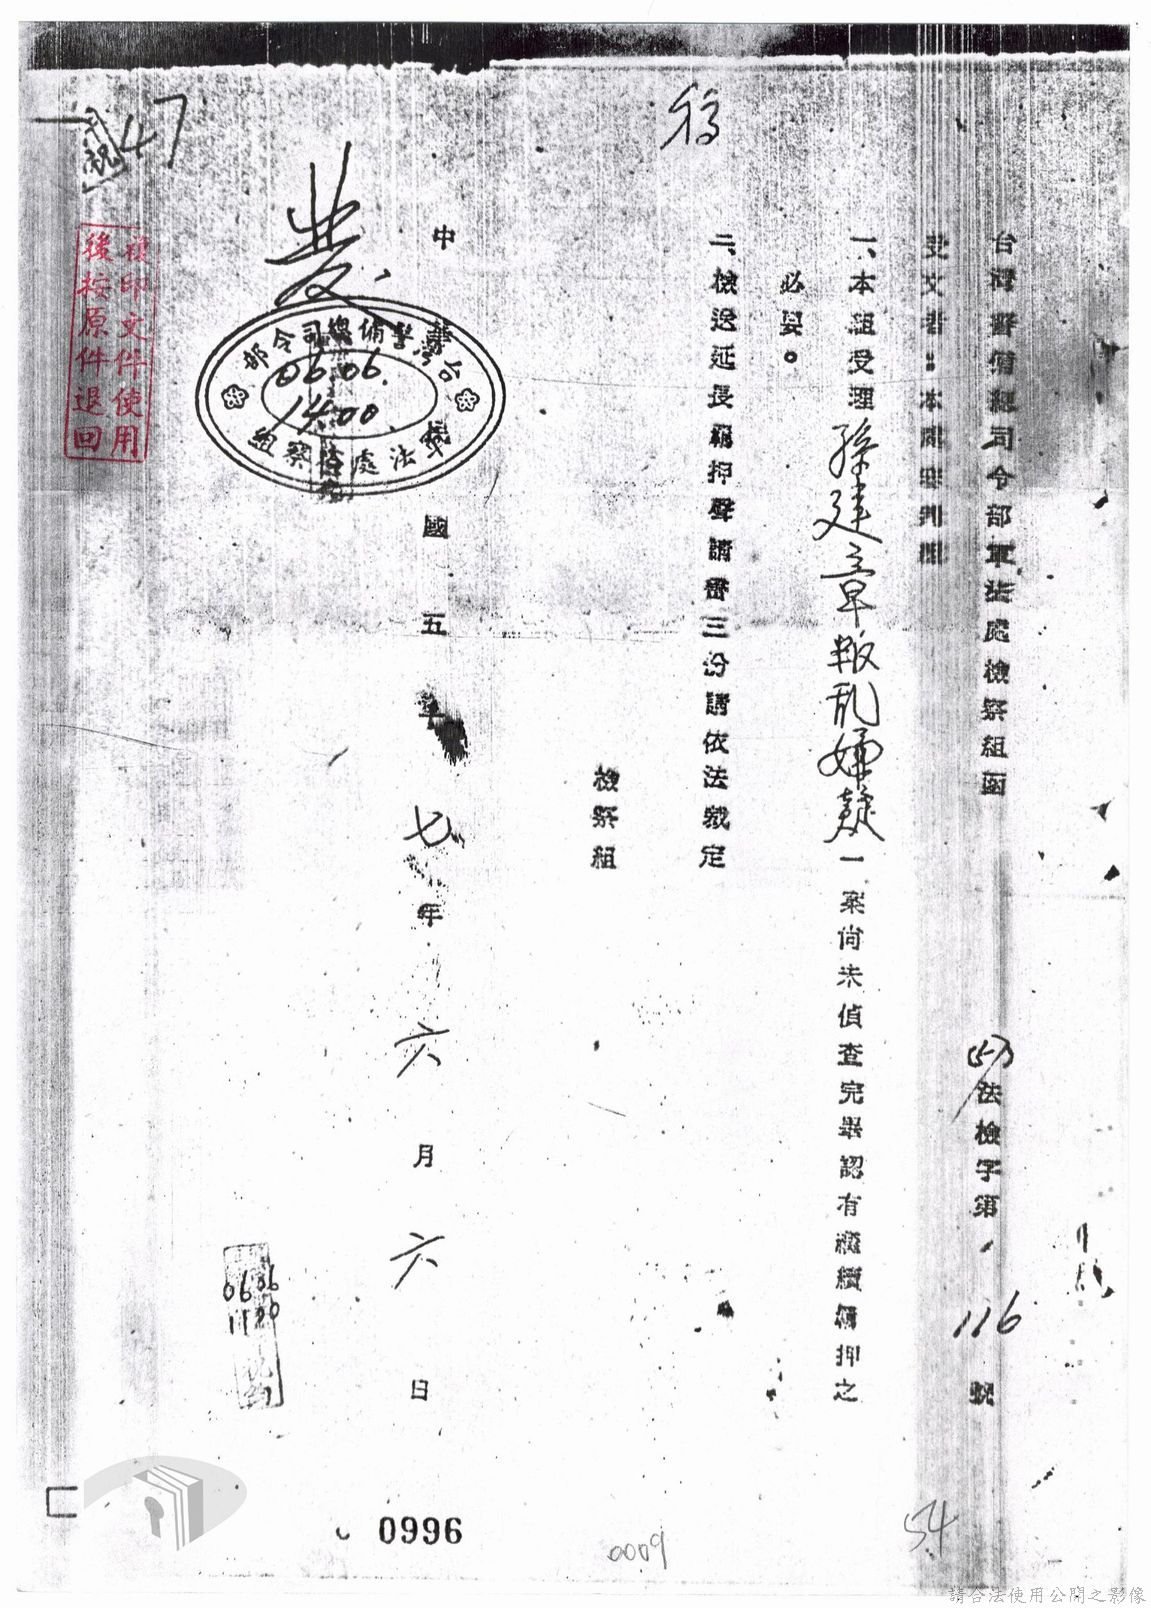 稿
台灣警備總司令部軍法處檢察組函 (57)法檢字第 116 號
受文者：本處審判組
一、本組受理孫建章叛乱嫌疑一案尚未偵查完畢認有繼續羈押之
必要。
二、檢送延長羈押聲請書三份請依法裁定
檢察組
中 國 五 七年 六 月 六 日
台灣警備總司令部
06.06
14.00
軍法處檢察組
06 06
11 00
複印文件使用
後按原件退回
47
0996
0009
54
請合法使用公開之影像